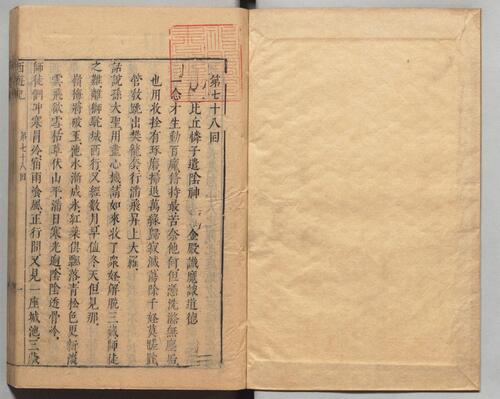 第七十八回
比丘憐子遣陰神 金殿識魔談道德
一念才生動百魔修持最苦奈他何但憑洗滌無塵垢
也用收拴有琢磨掃退萬緣歸寂滅蕩除千怪莫蹉跎
管教跳出樊籠套行滿飛昇上大羅
話說孫大聖用盡心機請如來收了衆怪解脫三藏師徒
之難離獅駝城西行又經數月早值冬天但見那
嶺梅將破玉池水漸成氷紅葉俱飄落青松色更新淡
雲飛欲雪枯草伏山平滿目寒光迥陰陰透骨冷
師徒們冲寒冒冷宿雨餐風正行間又見一座城池三藏
西遊記
第七十八回
一